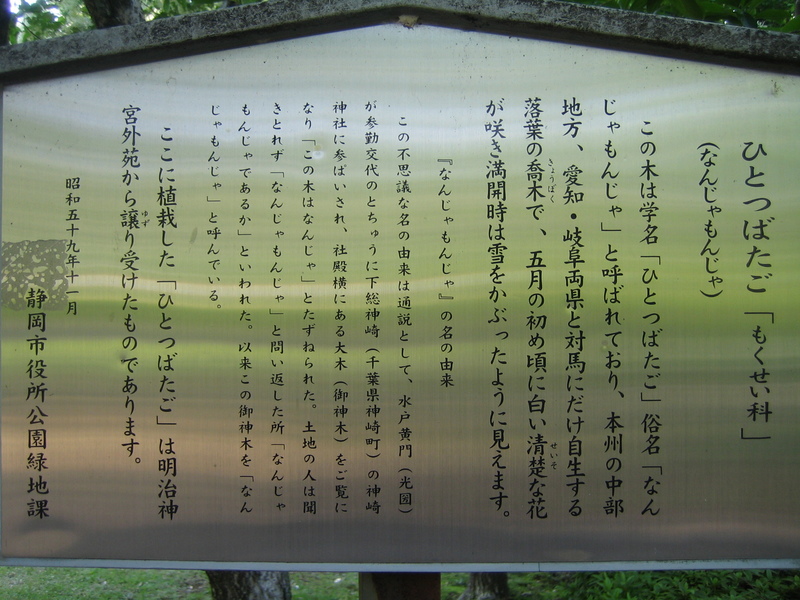 ひとつばたご「もくせい科」
(なんじゃもんじゃ)
この木は学名「ひとつばたご」俗名「なん
じゃもんじゃ」と呼ばれており、本州の中部
地方、愛知・岐阜両県と対馬にだけ自生する
落葉の喬木で、五月の初め頃に白い清楚な花
きょうぼく
せいそ
が咲き満開時は雪をかぶったように見えます。
『なんじゃもんじゃ』の名の由来
この不思議な名の由来は通説として、水戸黄門(光圀)
が参勤交代のとちゅうに下総神崎(千葉県神崎町)の神崎
神社に参ぱいされ、社殿横にある大木(御神木)をご覧に
なり「この木はなんじゃ」とたずねられた。土地の人は聞
きとれず「なんじゃもんじゃ」と問い返した所「なんじゃ
もんじゃであるか」といわれた。以来この御神木を「なん
じゃもんじゃ」と呼んでいる。
ここに植栽した「ひとつばたご」は明治神
宮外苑から譲り受けたものであります。
ゆず
昭和五十九年十一月
静岡市役所公園緑地課